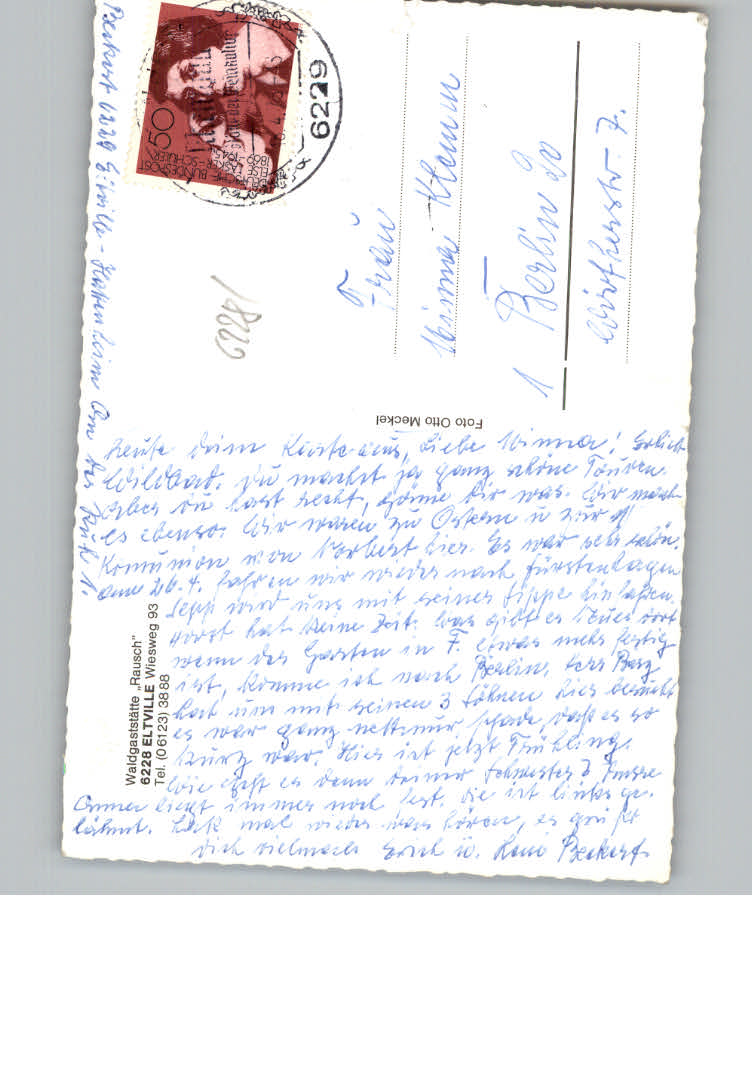 Heute deine Karte aus, Liebe Minna!
Wildbad. Du machst ja ganz schöne Touren.
Aber du hast recht, gönne dir was. Wir mach
es ebenso. Wir waren zu Ostern u zur
Komunion von Norbert hier. Es war sehr schön.
am 26.4. fahren wir wieder nach Fürstenhagen
Sepp wird uns mit seiner Sippe hinfahren
Horst hat keine Zeit. Was gibt es Neues dort
wenn der Garten in F. etwas mehr fertig
ist, komme ich nach Berlin.
hat uns mit seinen 3 Söhnen hier besucht
es war ganz nett nur schade, daß es so
kurz war. Hier ist jetzt Frühling.
Wie geht es denn deiner Schwester? Unsere
liegt immer noch fest. Sie ist links ge-
lähmt. Laß mal wieder was hören, es grüßt
dich vielmals Erich u. Leni Beckert
Beckert 6229 Eltville-Hattenheim An der
Waldgaststätte „Rausch"
6228 ELTVILLE Wiesweg 93
Tel. (06123) 3888
Foto Otto Meckel
Frau
Minna Klamm
1 Berlin 20
6228/
6229
50
DEUTSCHE BUNDESPOST
ELSE LASKER-SCHÜLER
1869-1945